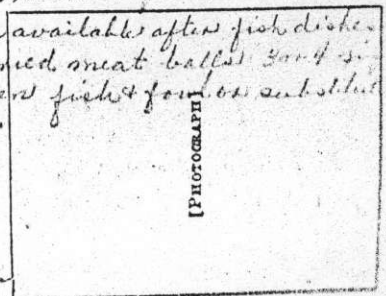 available after fish dishes
ried meat balls 3 or 4
en fish & fowl or substitut
[PHOTOGRAPH]